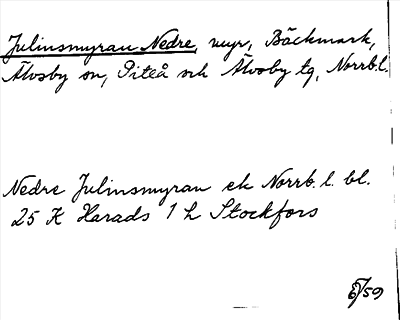 Julinsmyran Nedre, myr, Bäckmark,
Älvsby sn, Piteå och Älvsby tg, Norrb.l.
Nedre Julinsmyran ek Norrb. l. bl.
25 K Harads 1 h Stockfors
/59